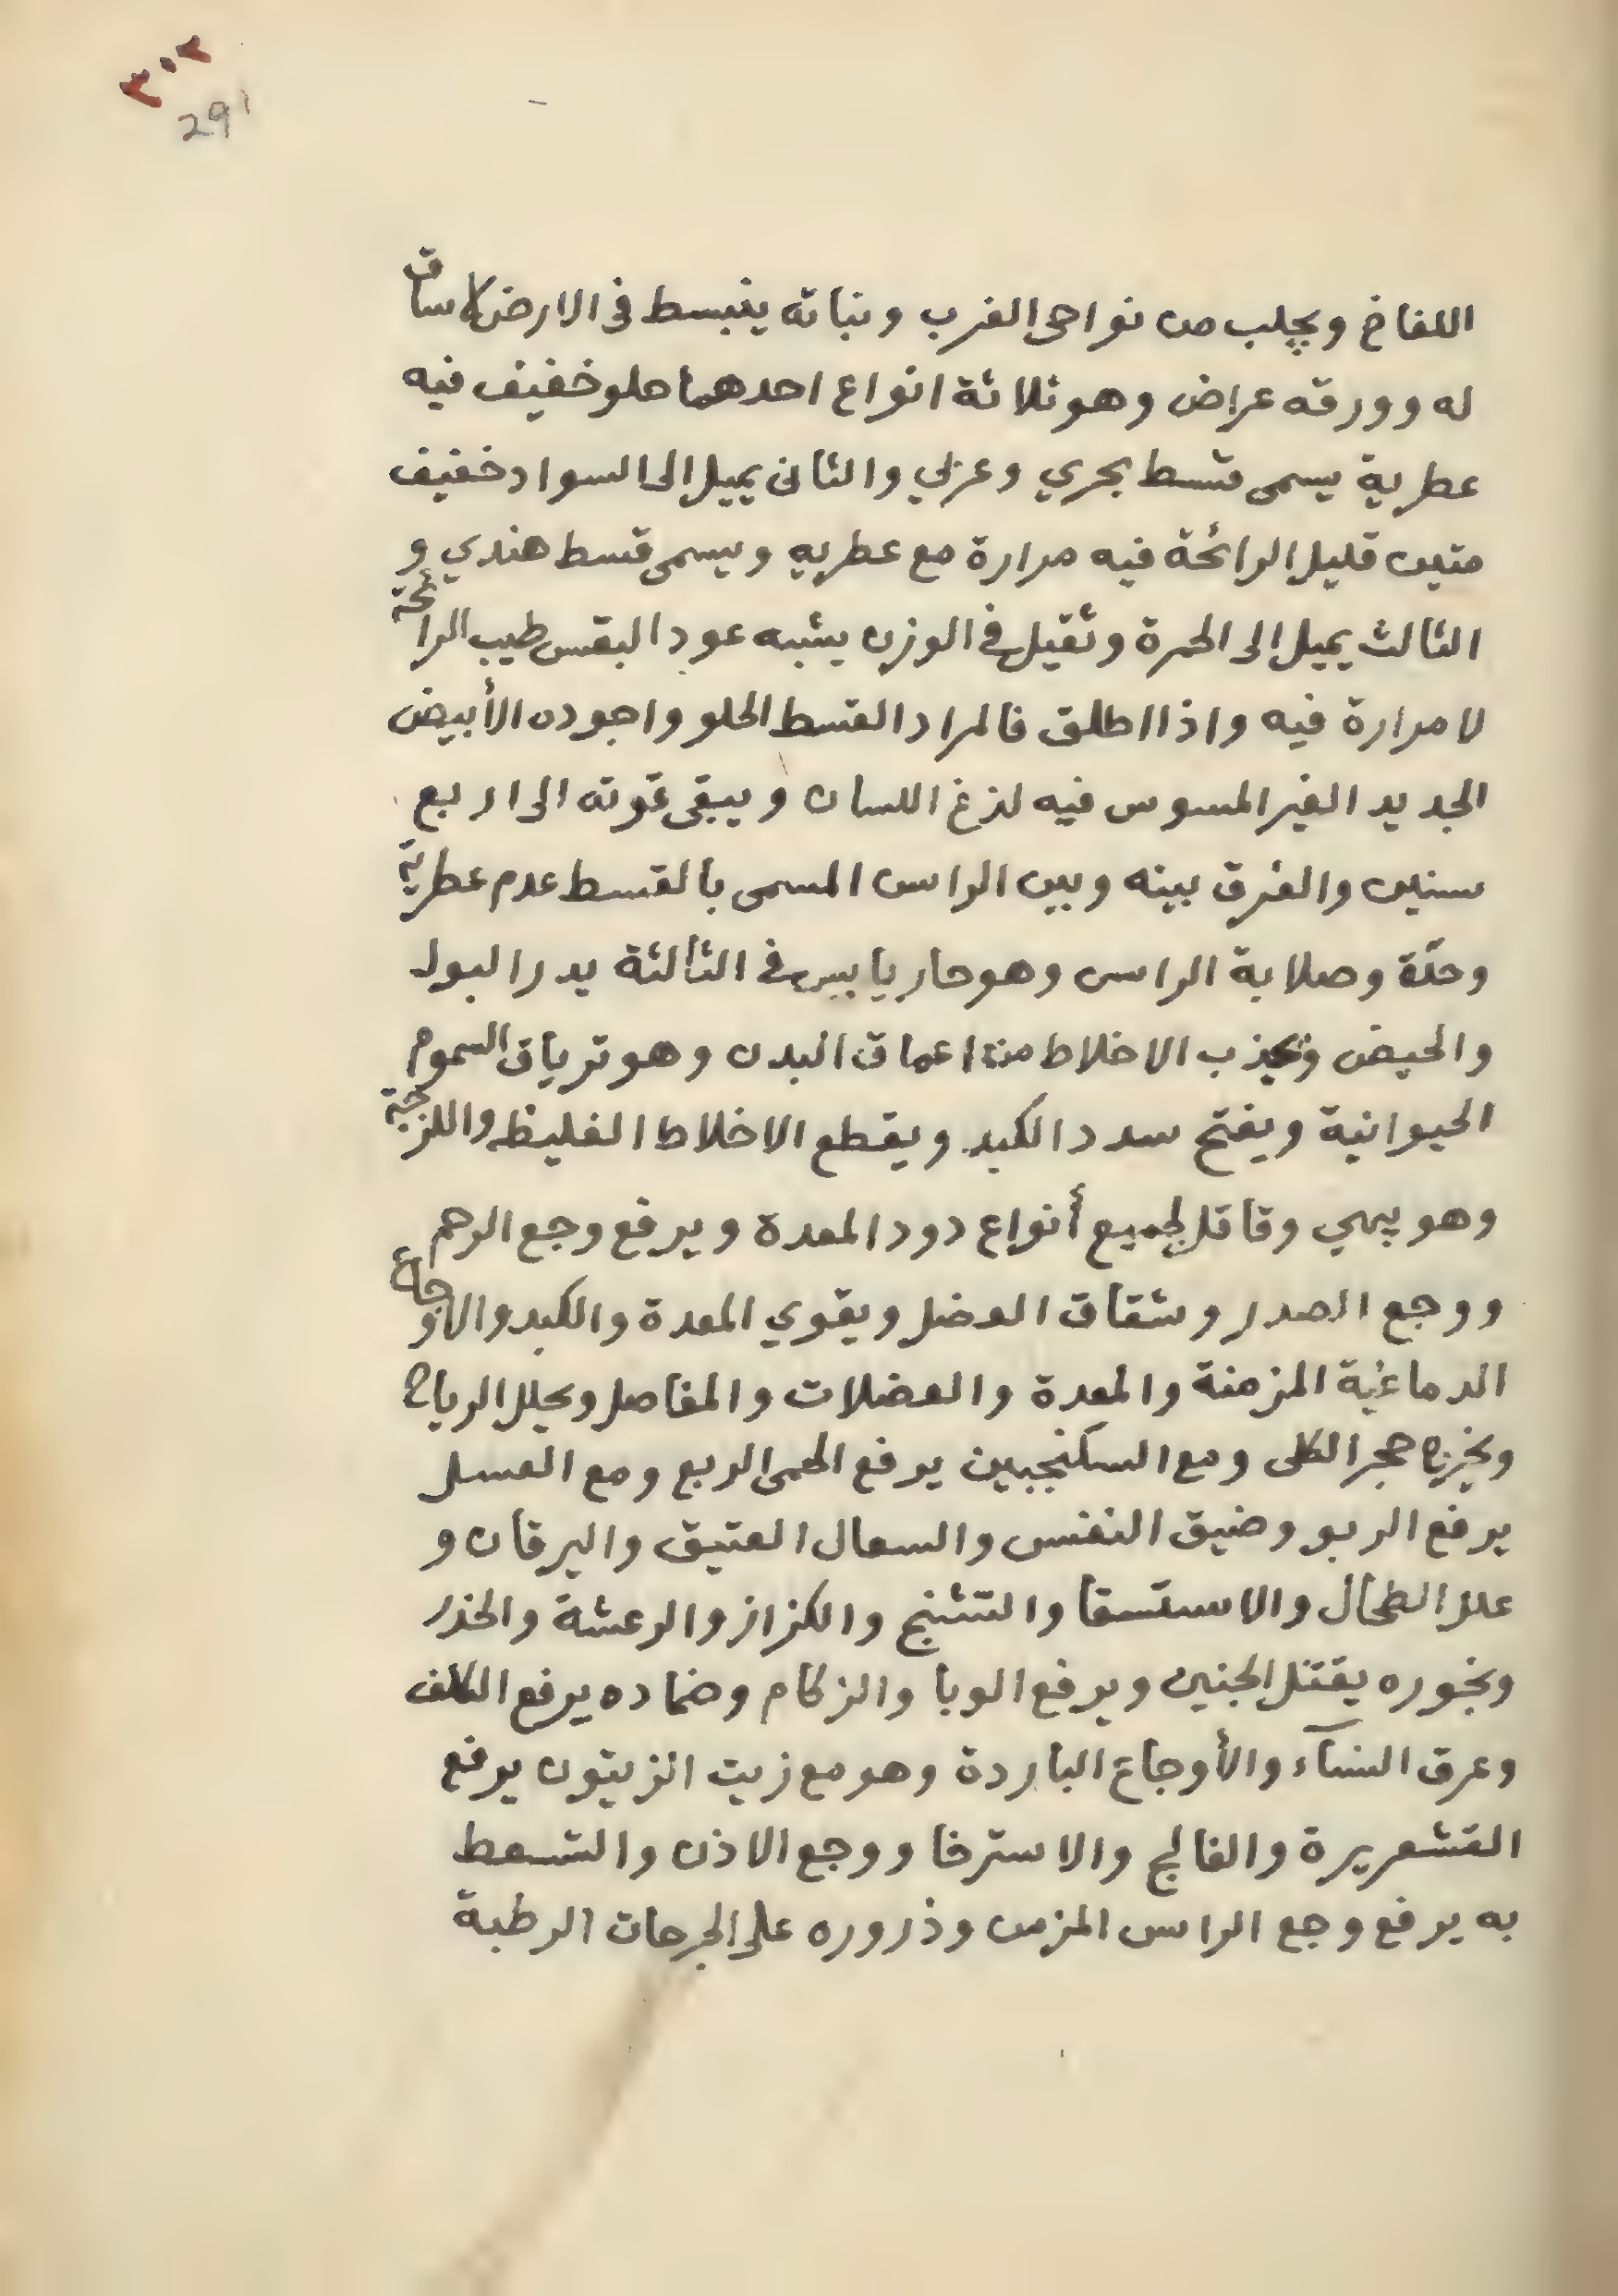 ٣٠٢
291
اللفاخ ويجلب من نواحى الغرب ونباته ينبسط فى الارض لا ساق
له وورقه عراض وهو ثلاثة انواع احدهما حلو خفيف فيه
عطرية يسمى قسط بحري وعربي والثانى يميل الى السواد خفيف
متين قليل الرائحة فيه مرارة مع عطريه ويسمى قسط هندي و
الثالث يميل الى الحمرة وثقيل فى الوزن يشبه عود البقس طيب الرائحة
لا مرارة فيه واذا اطلق فالمراد القسط الحلو واجوده الأبيض
الجديد الغير المسوس فيه لذع اللسان ويبقى قوته الى اربع
سنين والفرق بينه وبين الراسن المسمى بالقسط عدم عطرية
وحدّة وصلابة الراسن وهو حار يابس فى الثالثة يدر البول
والحيض ويجذب الاخلاط من اعماق البدن وهو ترياق السموم
الحيوانية ويفتح سدد الكبد ويقطع الاخلاط الغليظه واللزجة
وهو يبهي وقاتل لجميع أنواع دود المعدة ويرفع وجع الرحم
ووجع الصدر وشقاق العضل ويقوي المعدة والكبد والاوجاع
الدماغية المزمنة والمعدة والعضلات والمفاصل ويحلل الرياح
ويخرج حجر الكلى ومع السكنجبين يرفع الحمى الربع ومع العسل
يرفع الربو وضيق النفس والسعال العتيق واليرقان و
علل الطحال والاستسقا والتشنج والكزاز والرعشة والخدر
وبخوره يقتل الجنين ويرفع الوبا والزكام وضماده يرفع الكلف
وعرق النسآء والأوجاع الباردة وهو مع زيت الزيتون يرفع
القشعريرة والفالج والاسترخا ووجع الاذن والتسعط
به يرفع وجع الراس المزمن وذروره على الجرحات الرطبة